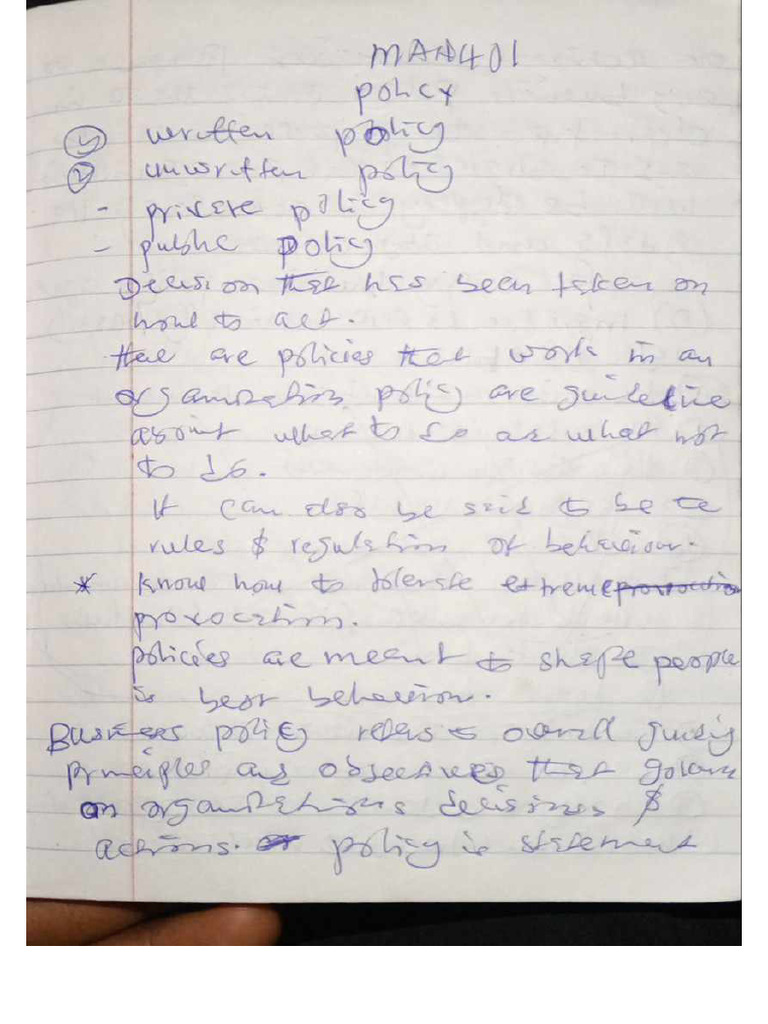 MAN401
policy
① written policy
② unwritten policy
- private policy
- public policy
Decision that has been taken on
how to act.
thee are policies that work in an
organization policy are guideline
what to do as what not
to do.
It can also be said to be
rules & regulation of behaviour.
* know how to tolerate extreme
provocation.
policies are meant to shape people
is best behaviour.
Business policy refers to overall guiding
principles and objectives that govern
an organizations decisions &
actions. policy is statement